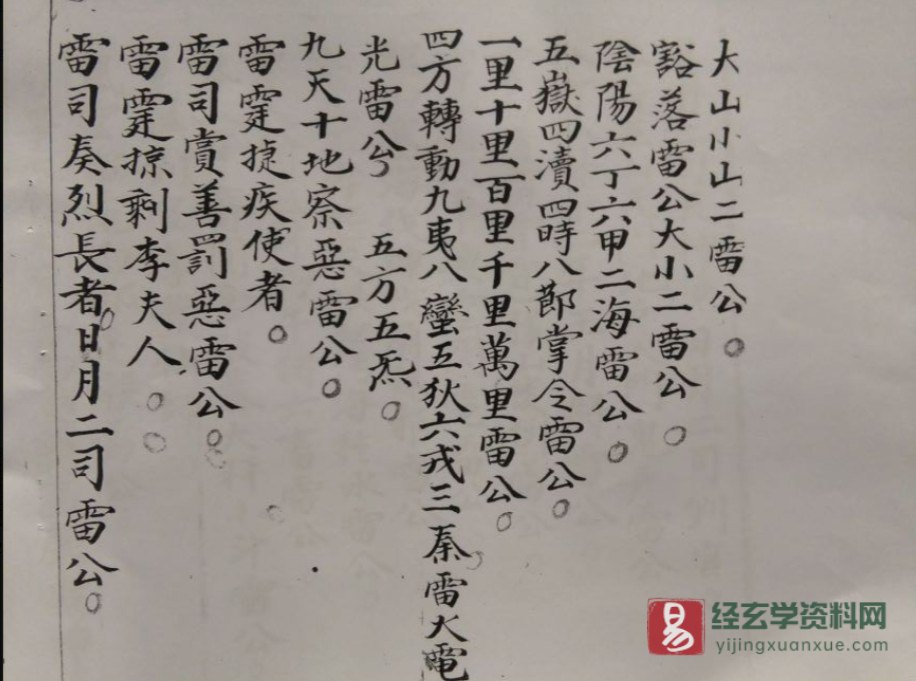 大山小山二雷公。
豁落雷公大小二雷公。
陰陽六丁六甲二海雷公。
五嶽四瀆四時八節掌令雷公。
一里十里百里千里萬里雷公。
四方轉動九夷八蠻五狄六戎三秦雷火電
光雷公 五方五炁。
九天十地察惡雷公。
雷霆捷疾使者。
雷司賞善罰惡雷公。
雷霆掠剩李夫人。
雷司奏烈長者。日月二司雷公。
易
经玄学资料网
yijingxuanxue.com